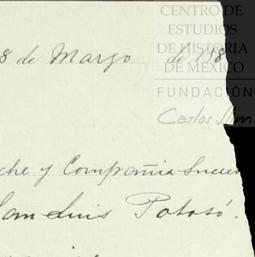 CENTRO DE
ESTUDIOS
DE HISTORIA
DE MÉXICO
8 de Marzo de 188
FUNDACIÓN
Carlos Slim
che y Compañia
San Luis Potosó.